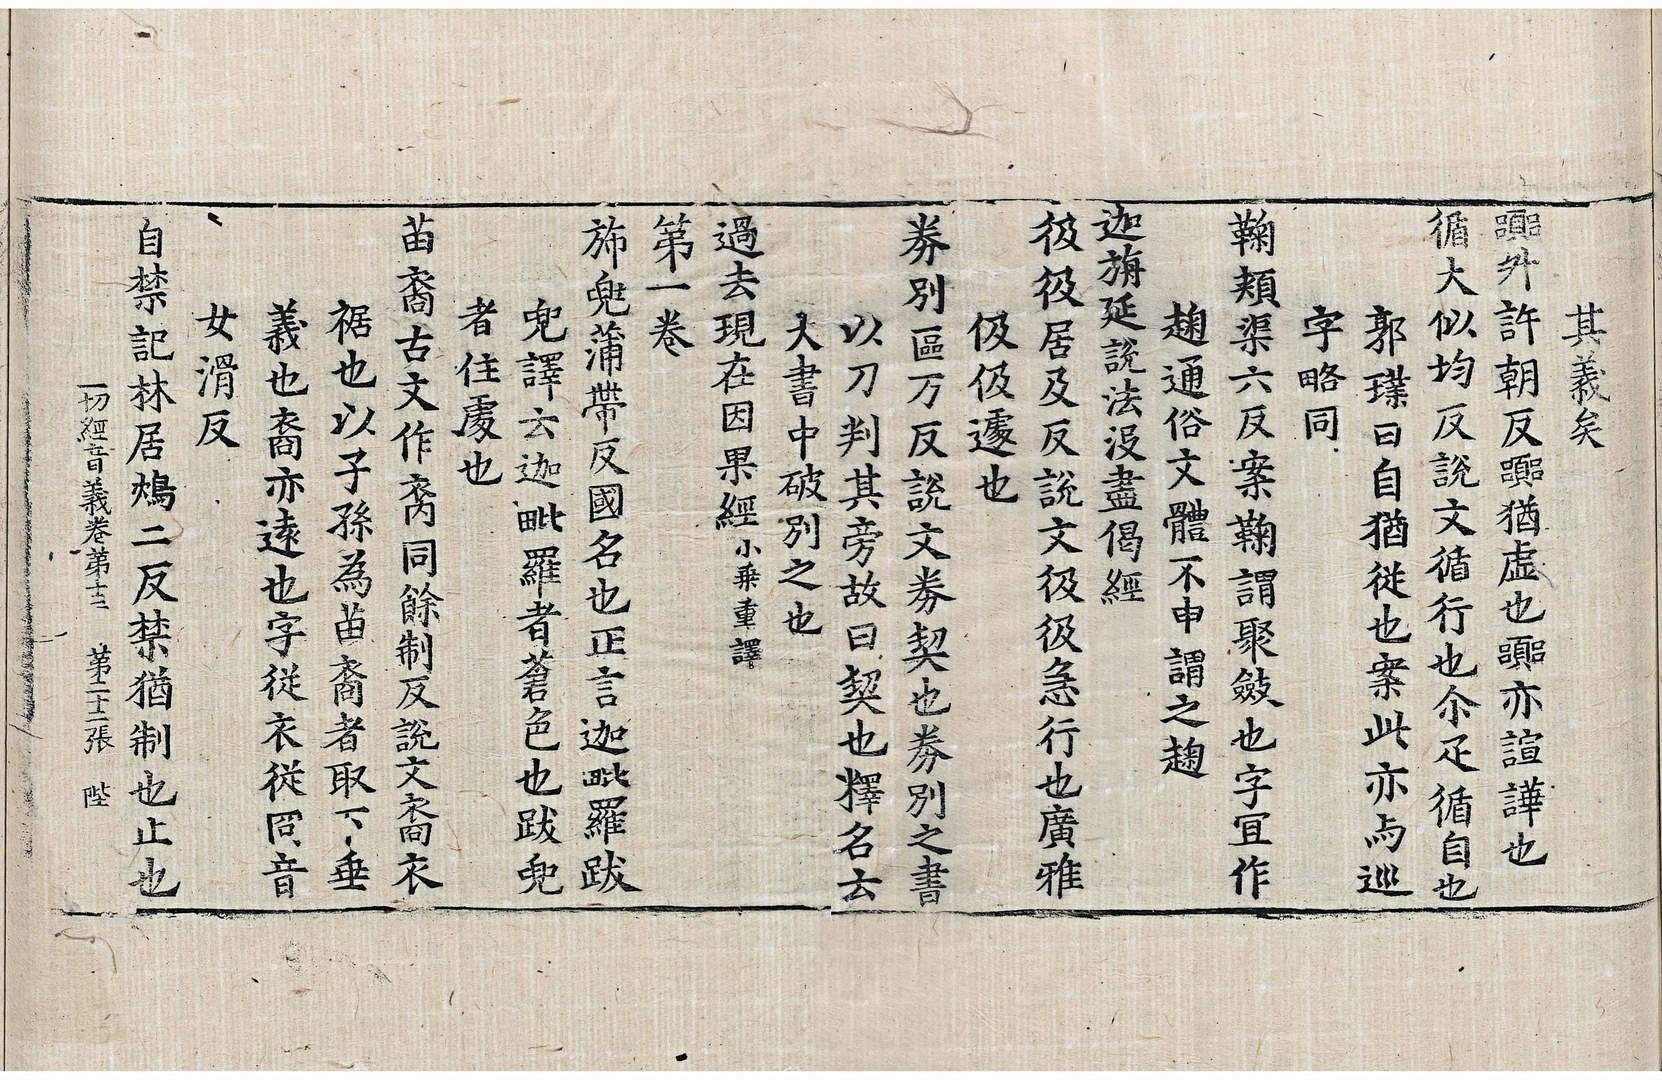 其義矣
嚚升許朝反嚚猶虛也嚚亦諠譁也
循大似均反說文循行也尒疋循自也
郭璞曰自猶從也案此亦与巡
字略同
鞠頰渠六反案鞠謂聚斂也字宜作
趜通俗文體不申謂之趜
迦旃延說法没盡偈經
彶彶居及反說文彶彶急行也廣雅
伋伋遽也
券別區万反說文券契也券別之書
以刀判其旁故曰契也釋名云
大書中破別之也
過去現在因果經小乘重譯
第一卷
斾兜蒲帶反國名也正言迦毗羅跋
兜譯云迦毗羅者蒼色也跋兜
者住處也
苗裔古文作㐮同餘制反說文裔衣
裾也以子孫為苗裔者取下垂
義也裔亦遠也字從衣從㕯音
女滑反
自禁記林居鴆二反禁猶制也止也
一切經音義卷第十三 第二十二張 陛